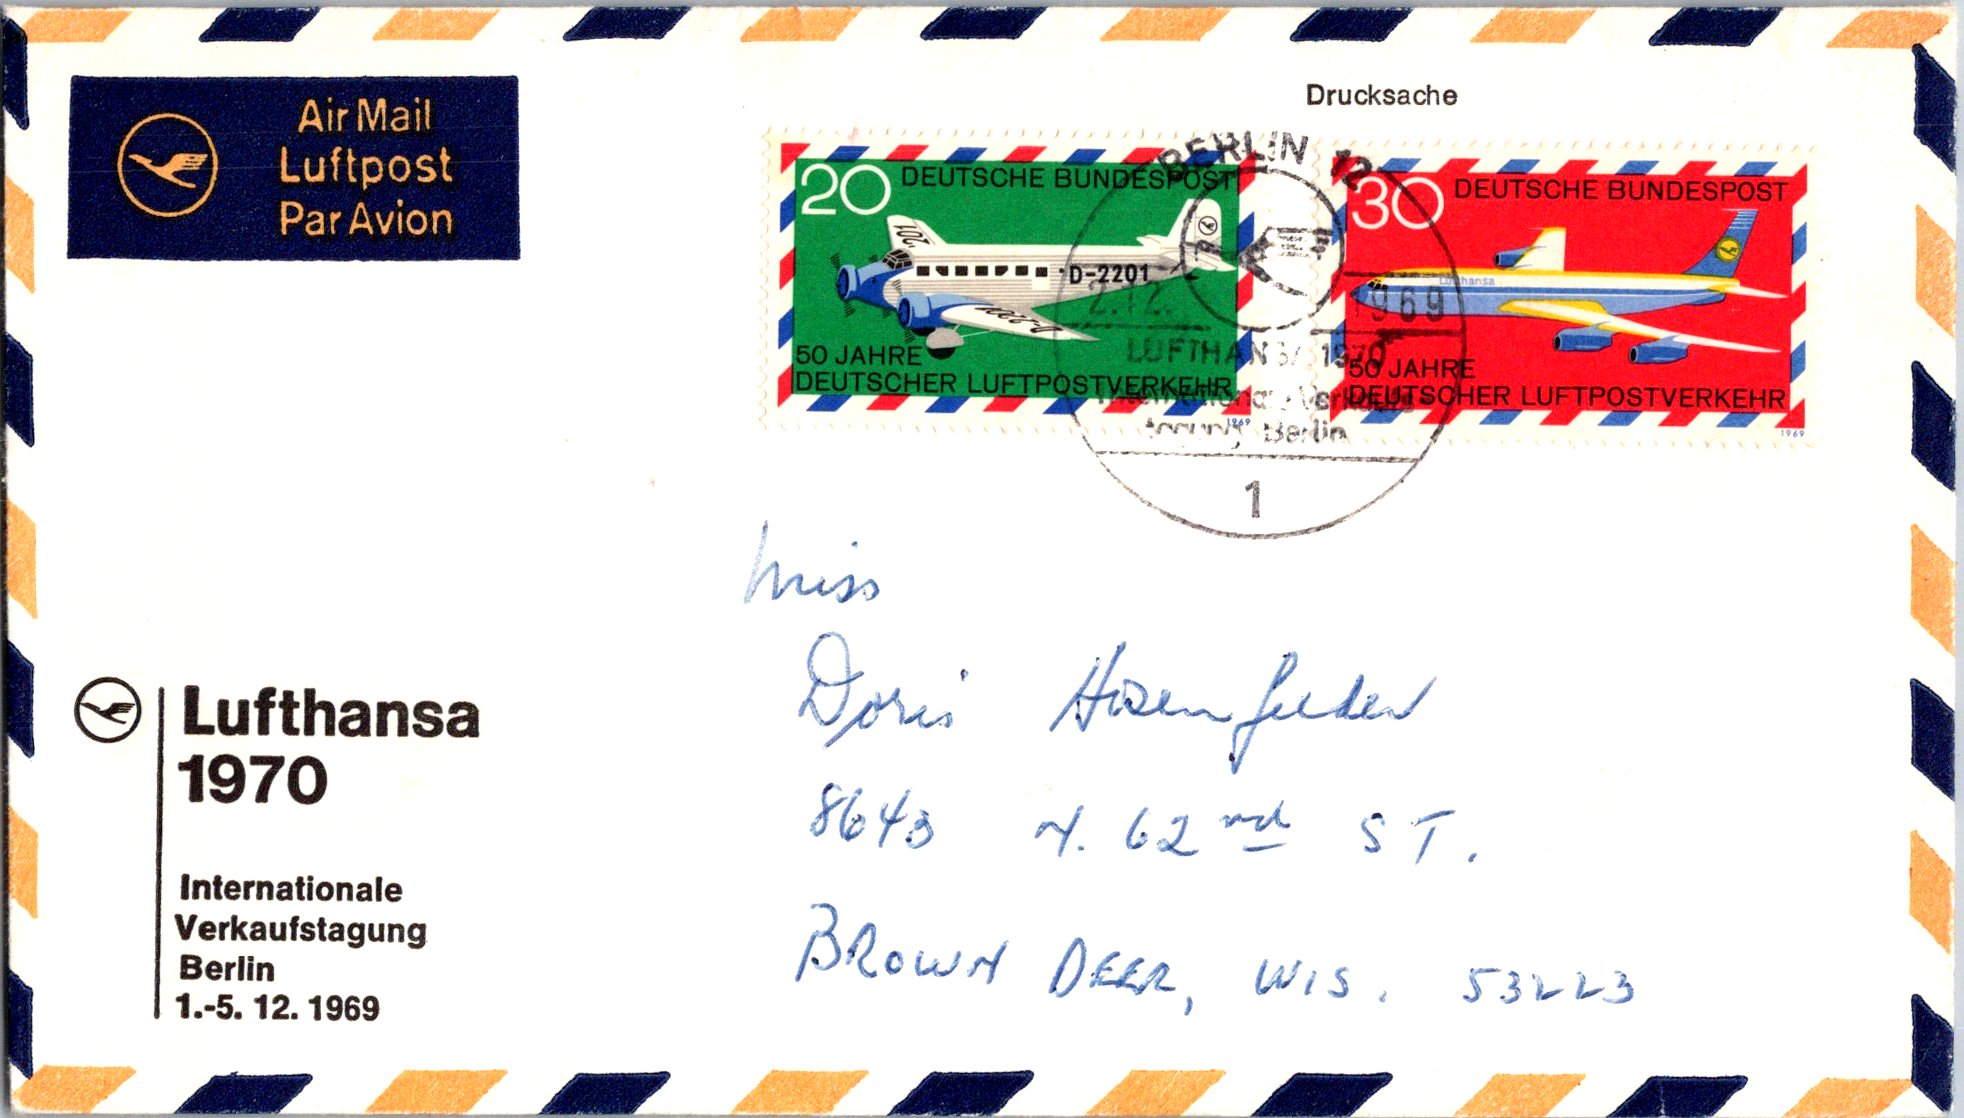 Air Mail
Luftpost
Par Avion
Drucksache
20 DEUTSCHE BUNDESPOST
D-2201
50 JAHRE
DEUTSCHER LUFTPOSTVERKEHR
1969
30 DEUTSCHE BUNDESPOST
Lufthansa
50 JAHRE
DEUTSCHER LUFTPOSTVERKEHR
1969
BERLIN 12
2.12. 1969
LUFTHANSA 1970
Internationale Verkaufs-
tagung Berlin
1
Miss
Doris
8643 N. 62nd ST.
BROWN DEER, WIS. 53223
Lufthansa
1970
Internationale
Verkaufstagung
Berlin
1.-5. 12. 1969